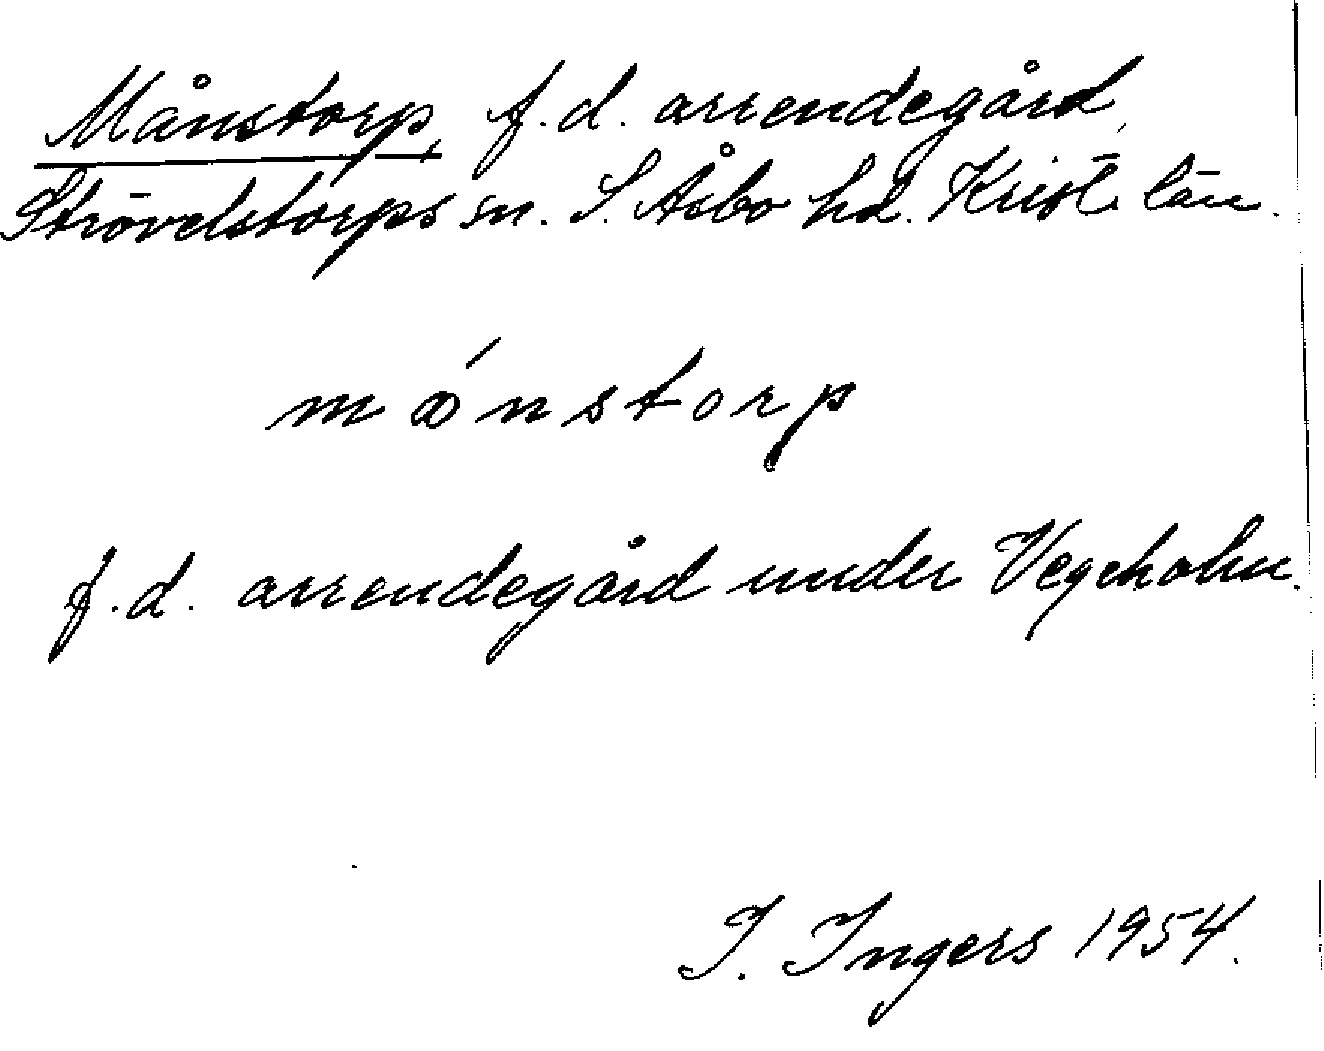 Månstorp, f.d. arrendegård,
Strövelstorps sn. S. Åsbo hd. Krist. län.
mǻnstorp
f.d. arrendegård under Vegeholm.
I. Ingers 1954.